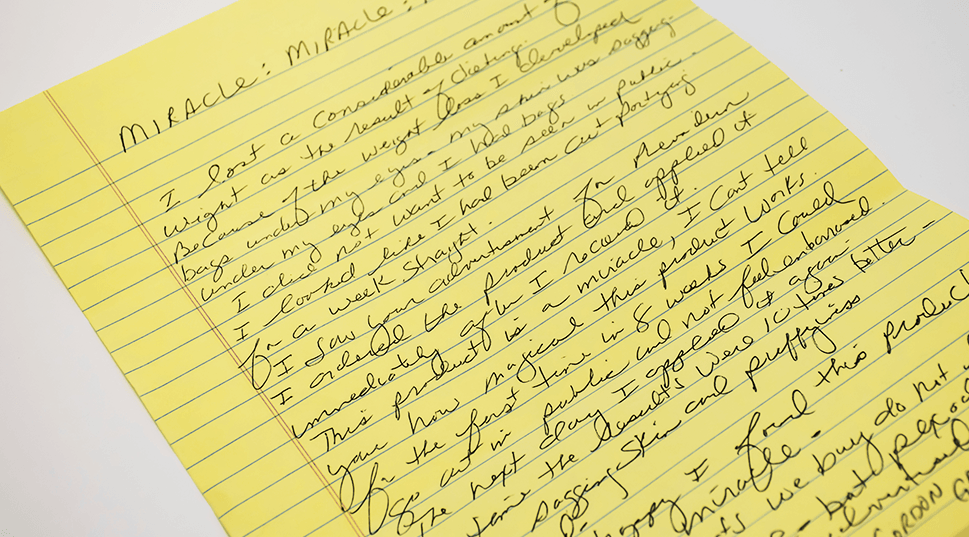 MIRACLE: MIRACLE:
I lost a considerable amount of
wieght as the result of dieting.
Because of the weight loss I developed
bags under my eyes - my skin was sagging
under my eyes and I had bags.
I did not want to be seen in public -
I looked like I had been out partying
for a week straight.
I saw your advertisement for Plexaderm
I ordered the product and applied it
immediately after I received it.
This product is a miracle, I Can't tell
you how magical this product works.
for the first time in 8 weeks I Could
go out in public and not feel embarrassed.
The next day I applied it again
time the results were 10 times better -
sagging skin and puffyness
happy I found this product
miracle.
we buy do not
- but
GORDON